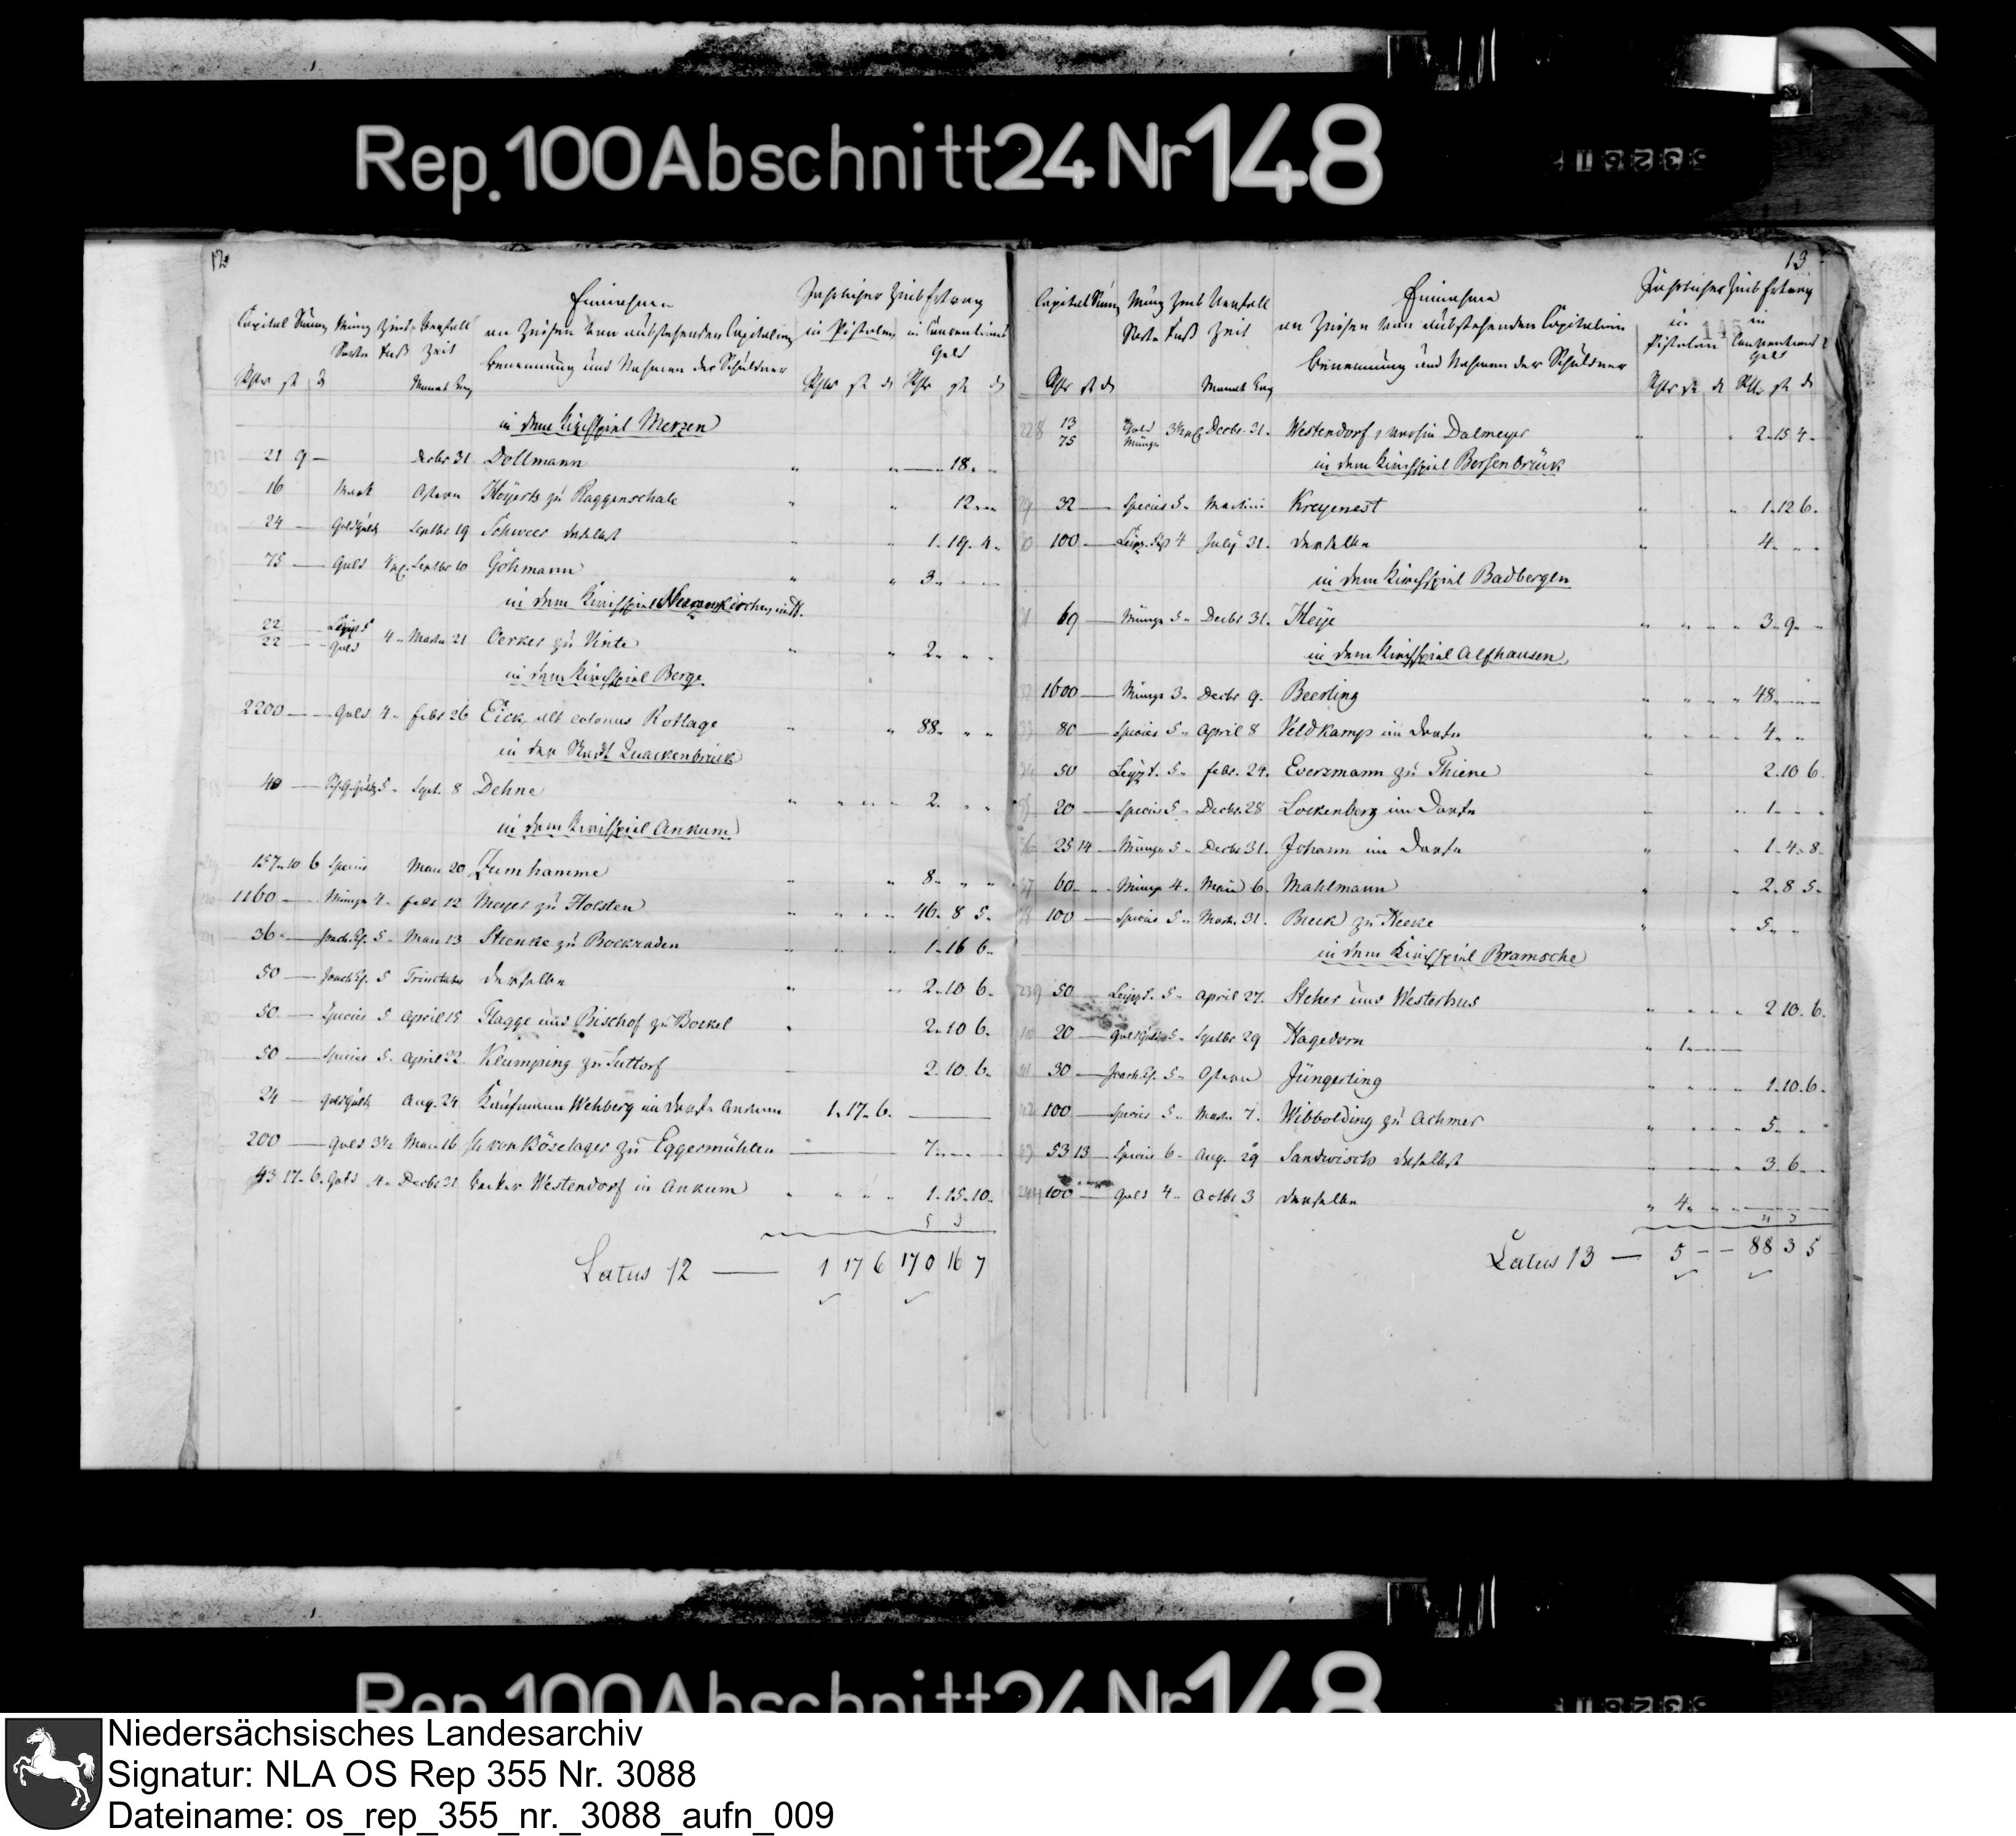 Rep. 100 Abschnitt 24 Nr 148
12
Einnahme
Jährlicher Zins Ertrag
Capital Summ Münz Zins Verfall an Zinsen von ausstehenden Capitalien in Pistolen in Conventions
Sorte Fuß Zeit Geld
Benennung und Nahmen der Schuldner
Monat Tag
in dem Kirchspiel Merzen
21 9 Decbr 31 Dollmann 18
16 Mark Ostern Heyerts zu Plaggenschale 12
24 Goldguld Septbr 19 Schweer daselbst 1 19 4
75 Gold Septbr 10 Göhmann 3
in dem Kirchspiel Neuenkirchen
22
22 Gold 4 21 Oerker zu Vinte 2
in dem Kirchspiel Berge
2200 Gold 4 Febr 26 Eick, alt colonus Rotlage 88
in der Stadt Quackenbrück
40 5 Sept. 8 Dehne 2
in dem Kirchspiel Ankum
157 10 6 Species May 20 Zumhamme 8
1160 Münze 4 Febr 12 Meyer zu Holsten 46 8 5
36 5 May 13 Stienke zu Bockraden 1 16 6
50 5 Trinitatis derselbe 2 10 6
50 Species 5 April 15 Flagge und Bischof zu Bockel 2 10 6
50 Species 5 April 22 Klumping zu Suttorf 2 10 6
24 Goldguld Aug. 24 Kaufmann Wehberg im Dorfe Ankum 1 17 6
200 Gold 3½ May 16 von Böselager zu Eggermühlen 7
43 17 6 Gold 4 Decbr 31 Westendorf in Ankum 1 15 10
5 3
Latus 12 — 1 17 6 170 16 7
13
Einnahme
Jährlicher Zins Ertrag
Capital Summ Münz Zins Verfall
Sorte Fuß Zeit an Zinsen von ausstehenden Capitalien in Pistolen in Conventions Geld
Benennung und Nahmen der Schuldner
Monat Tag
228 13 Gold
75 Münze Decbr. 31. Westendorf, Dalmeyer 2 15 4
in dem Kirchspiel Bersenbrück
32 Species 5 Martini Kreyenest 1 12 6
100 4 July 31. derselbe 4
in dem Kirchspiel Badbergen
69 Münze 5 Decbr 31. Heye 3 9
in dem Kirchspiel Alfhausen
1600 Münze 3 Decbr 9. Beerling 48
80 Species 5 April 8 Veldkamp im Dorfe 4
50 Leipz. 5 Febr. 24. Everzmann zu Thiene 2 10 6
20 Species 5 Decbr. 28 Lockenberg im Dorfe 1
25 14 Münze 5 Decbr 31. Johann im Dorfe 1 4 8
60 Münze 4 May 6. Mahlmann 2 8 5
100 Species 5 31. Bieck zu Heeke 5
in dem Kirchspiel Bramsche
239 50 Leipz. 5 April 27. Steher und Westerhus 2 10 6
20 Goldguld 5 Septbr 29 Hagedorn 1
30 5 Ostern Jüngerling 1 10 6
100 Species 5 7. Wibbolding zu Achmer 5
53 13 Species 6 Aug. 29 Sandwisch daselbst 3 6
244 100 Gold 4 Octbr 3 derselbe 4
Latus 13 — 5 — — 88 3 5
Rep. 100 Abschnitt 24 Nr 148
Niedersächsisches Landesarchiv
Signatur: NLA OS Rep 355 Nr. 3088
Dateiname: os_rep_355_nr._3088_aufn_009